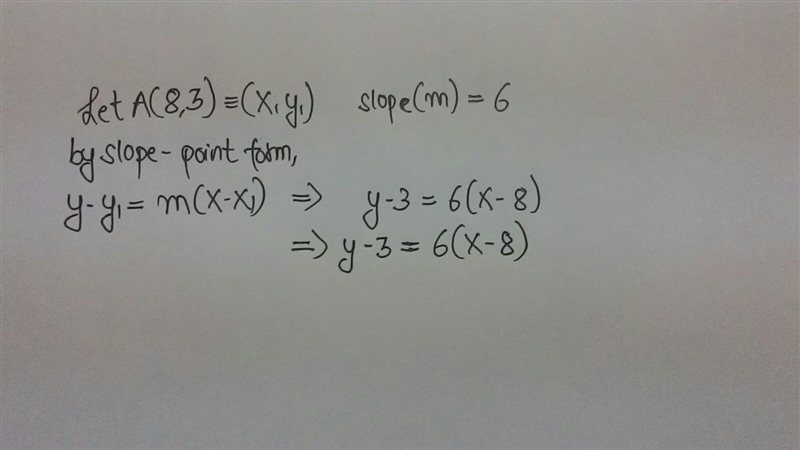 Let A(8,3) ≡ (x₁ y₁) slope(m) = 6
by slope-point form,
y-y₁ = m(x-x₁) ⇒ y-3 = 6(x-8)
⇒ y-3 = 6(x-8)